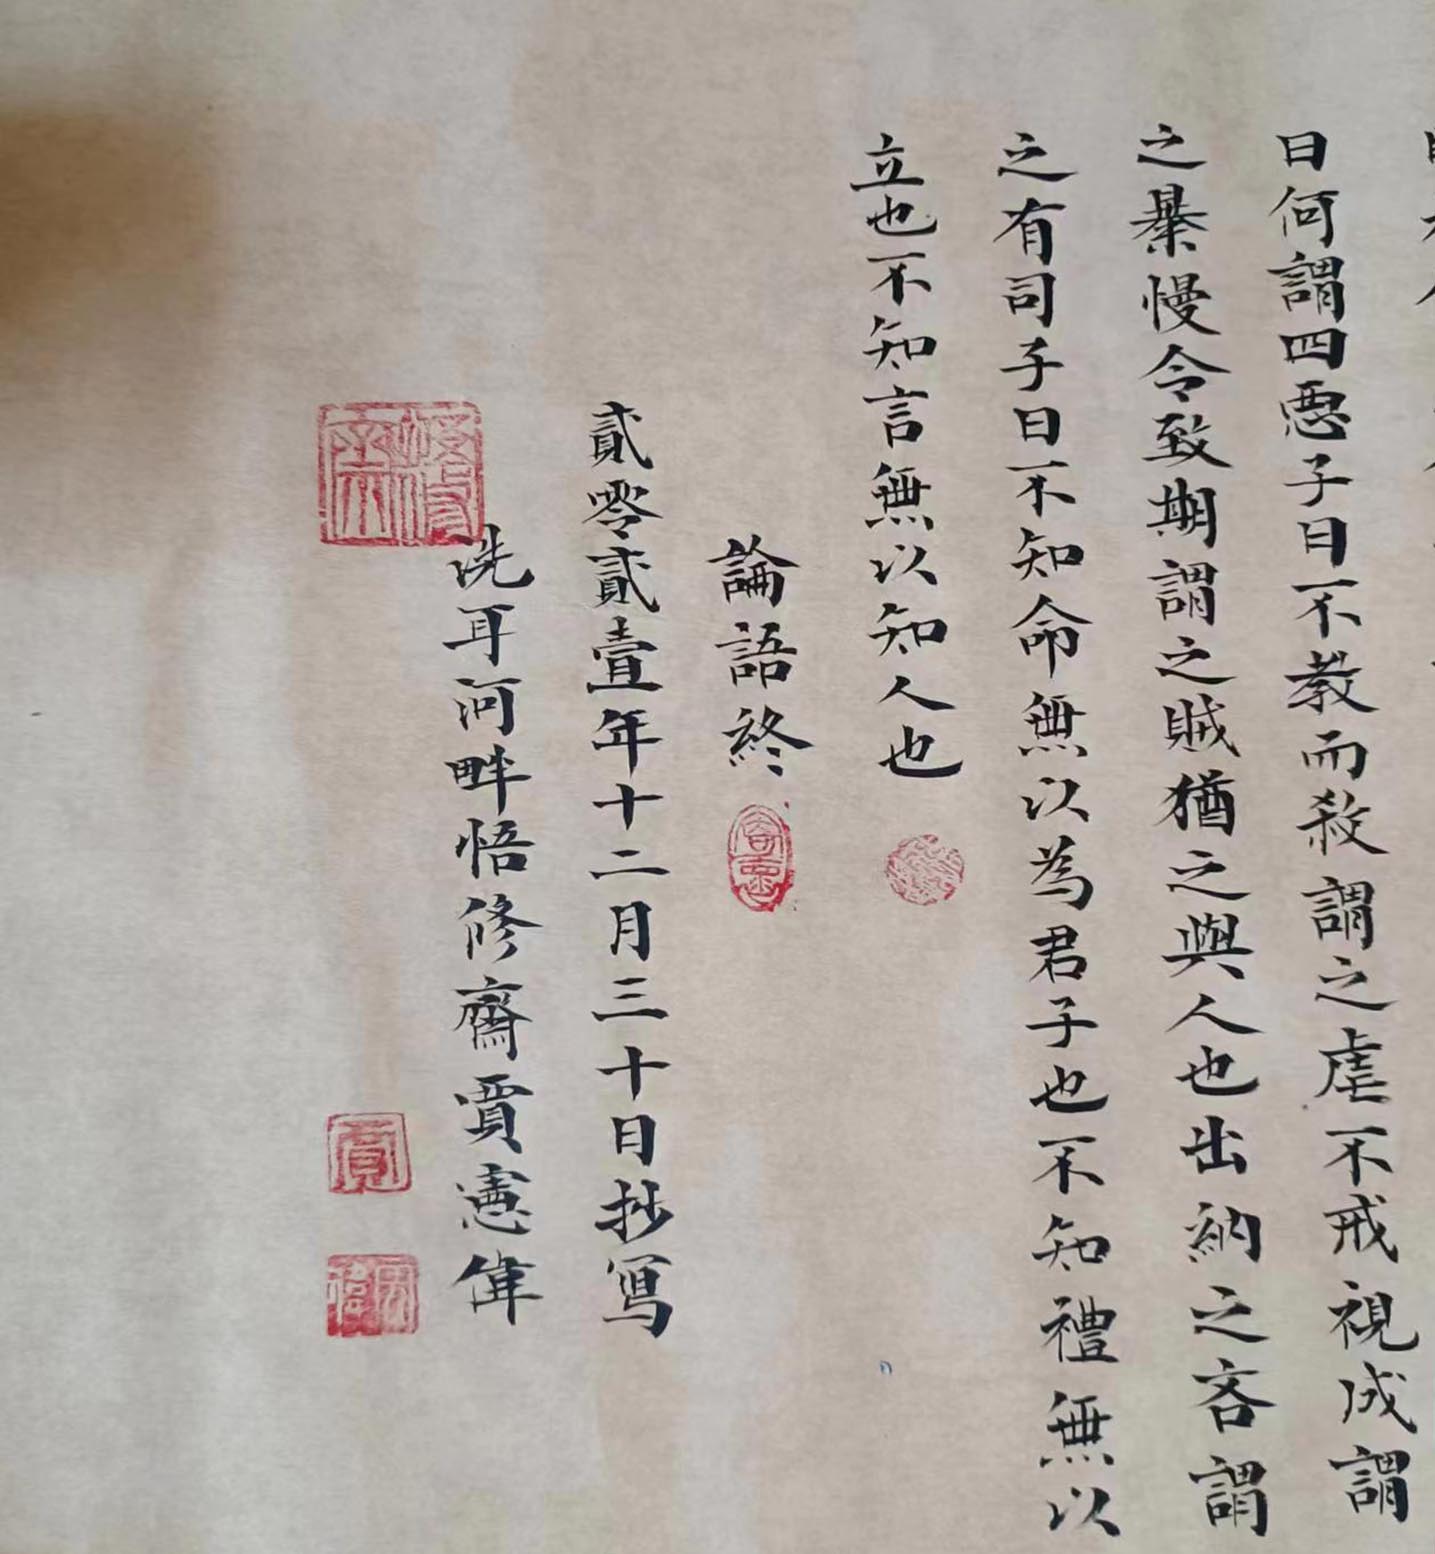 曰何謂四惡子曰不教而殺謂之虐不戒視成謂
之暴慢令致期謂之賊猶之與人也出納之吝謂
之有司子曰不知命無以為君子也不知禮無以
立也不知言無以知人也
論語終
貳零貳壹年十二月三十日抄寫
洗耳河畔悟修齋賈憲偉